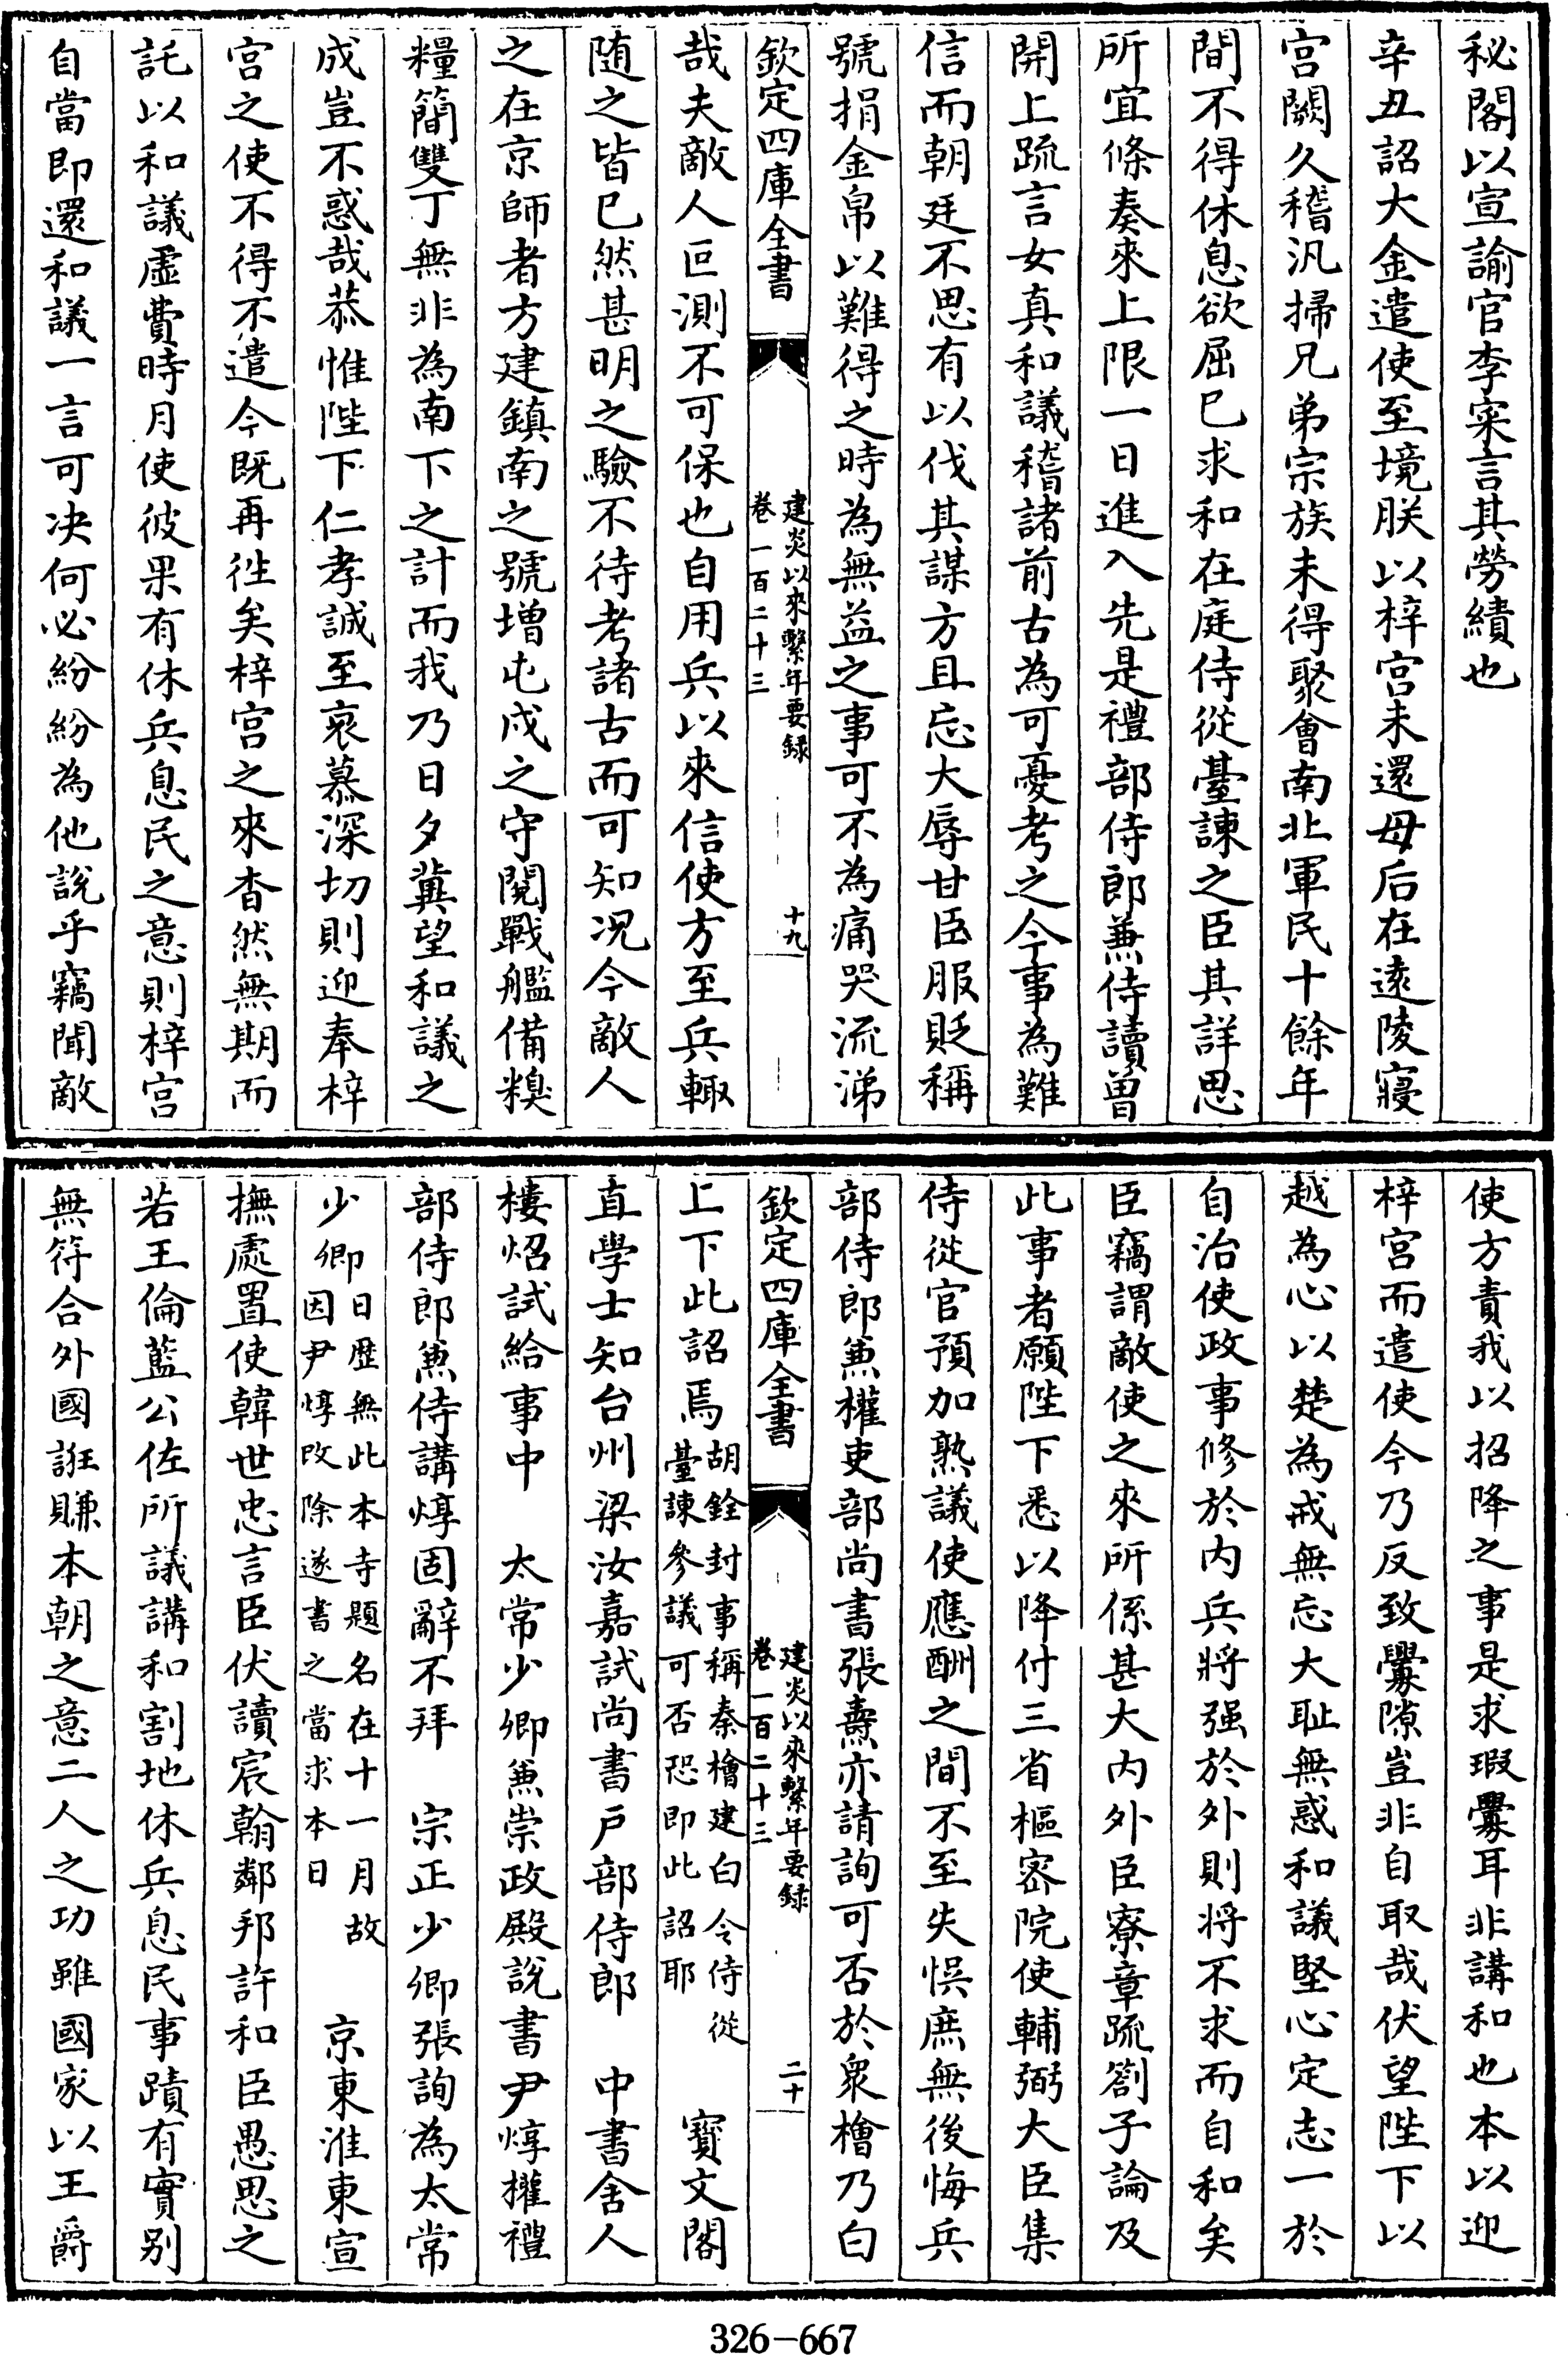 秘閣以宣諭官李寀言其勞績也
辛丑詔大金遣使至境朕以梓宮未還母后在遠陵寢
宮闕久稽汎掃兄弟宗族未得聚會南北軍民十餘年
間不得休息欲屈已求和在庭侍從臺諫之臣其詳思
所宜條奏來上限一日進入先是禮部侍郎兼侍讀曾
開上疏言女真和議稽諸前古為可憂考之今事為難
信而朝廷不思有以伐其謀方且忘大辱甘臣服貶稱
號捐金帛以難得之時為無益之事可不為痛哭流涕
欽定四庫全書
建炎以來繫年要録
卷一百二十三
十九
哉夫敵人叵測不可保也自用兵以來信使方至兵輙
随之皆已然甚明之驗不待考諸古而可知况今敵人
之在京師者方建鎮南之號增屯戍之守閱戰艦備糗
糧簡雙丁無非為南下之計而我乃日夕冀望和議之
成豈不惑哉恭惟陛下仁孝誠至哀慕深切則迎奉梓
宮之使不得不遣今既再徃矣梓宮之來杳然無期而
託以和議虛費時月使彼果有休兵息民之意則梓宮
自當即還和議一言可决何必紛紛為他說乎竊聞敵
使方責我以招降之事是求瑕釁耳非講和也本以迎
梓宮而遣使今乃反致釁隙豈非自取哉伏望陛下以
越為心以楚為戒無忘大恥無惑和議堅心定志一於
自治使政事修於内兵將强於外則將不求而自和矣
臣竊謂敵使之來所係甚大内外臣寮章疏劄子論及
此事者願陛下悉以降付三省樞密院使輔弼大臣集
侍從官預加熟議使應酬之間不至失悞庶無後悔兵
部侍郎兼權吏部尚書張燾亦請詢可否於衆檜乃白
欽定四庫全書
建炎以來繫年要録
卷一百二十三
二十
上下此詔焉胡銓封事稱秦檜建白令侍從
臺諫參議可否恐即此詔耶
寶文閣
直學士知台州梁汝嘉試尚書戶部侍郎　中書舍人
樓炤試給事中　太常少卿兼崇政殿說書尹焞權禮
部侍郎兼侍講焞固辭不拜　宗正少卿張詢為太常
少卿日歴無此本寺題名在十一月故
因尹焞改除遂書之當求本日
京東淮東宣
撫處置使韓世忠言臣伏讀宸翰鄰邦許和臣愚思之
若王倫藍公佐所議講和割地休兵息民事蹟有實别
無符合外國誑賺本朝之意二人之功雖國家以王爵
326-667